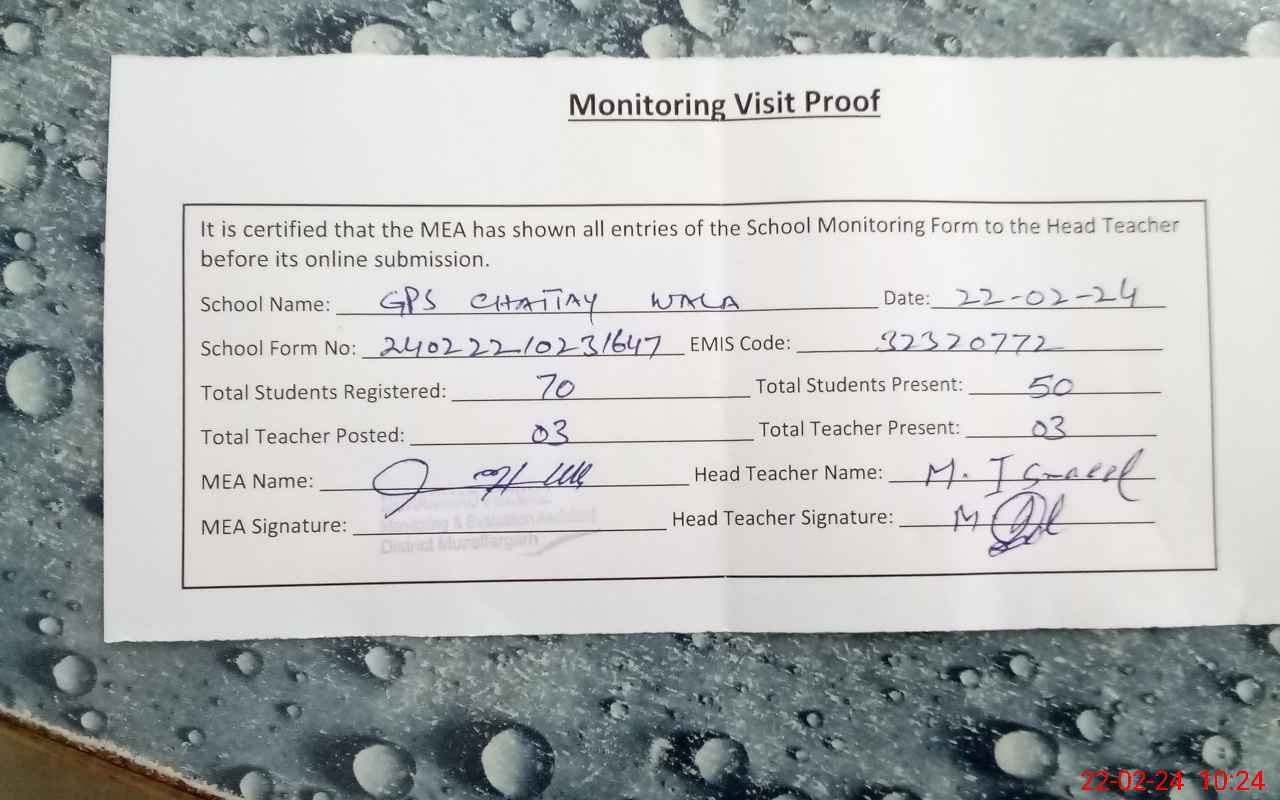 Monitoring Visit Proof
It is certified that the MEA has shown all entries of the School Monitoring Form to the Head Teacher
before its online submission.
School Name: GPS CHATTAY WALA Date: 22-02-24
School Form No: 24022210231647 EMIS Code: 32320772
Total Students Registered: 70 Total Students Present: 50
Total Teacher Posted: 03 Total Teacher Present: 03
MEA Name: Head Teacher Name: M. Ismaeel
MEA Signature: Head Teacher Signature: M
Monitoring & Evaluation Assistant
District Muzaffargarh
22-02-24 10:24